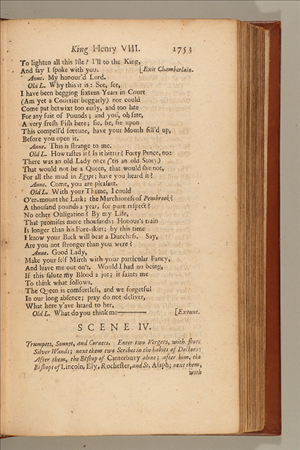 King Henry VIII. 1753
To lighten all this Isle? I'll to the King,
And say I spoke with you. [Exit Chamberlain.
Anne. My honour'd Lord.
Old L. Why this it is: See, see,
I have been begging sixteen Years in Court
(Am yet a Courtier beggarly) nor could
Come pat betwixt too early, and too late
For any suit of Pounds; and you, oh fate,
A very fresh Fish here; fie, fie, fie upon
This compell'd fortune, have your Mouth fill'd up,
Before you open it.
Anne. This is strange to me.
Old L. How tastes it? Is it bitter? Forty Pence, no:
There was an old Lady once ('tis an old Story)
That would not be a Queen, that would she not,
For all the mud in Egypt; have you heard it?
Anne. Come, you are pleasant.
Old L. With your Theme, I could
O'er-mount the Lark: the Marchioness of Pembrook!
A thousand pounds a year, for pure respect?
No other Obligation? By my Life,
That promises more thousands: Honour's train
Is longer than his Fore-skirt; by this time
I know your Back will bear a Dutchess. Say,
Are you not stronger than you were?
Anne. Good Lady,
Make your self Mirth with your particular Fancy,
And leave me out on't. Would I had no being,
If this salute my Blood a jot; it faints me
To think what follows.
The Queen is comfortless, and we forgetful
In our long absence; pray do not deliver,
What here y'ave heard to her.
Old L. What do you think me—— [Exeunt.
SCENE IV.
Trumpets, Sennet, and Cornets. Enter two Vergers, with short
Silver Wands; next them two Scribes in the habits of Doctors;
After them, the Bishop of Canterbury alone; after him, the
Bishops of Lincoln, Ely, Rochester, and St. Asaph; next them,
with